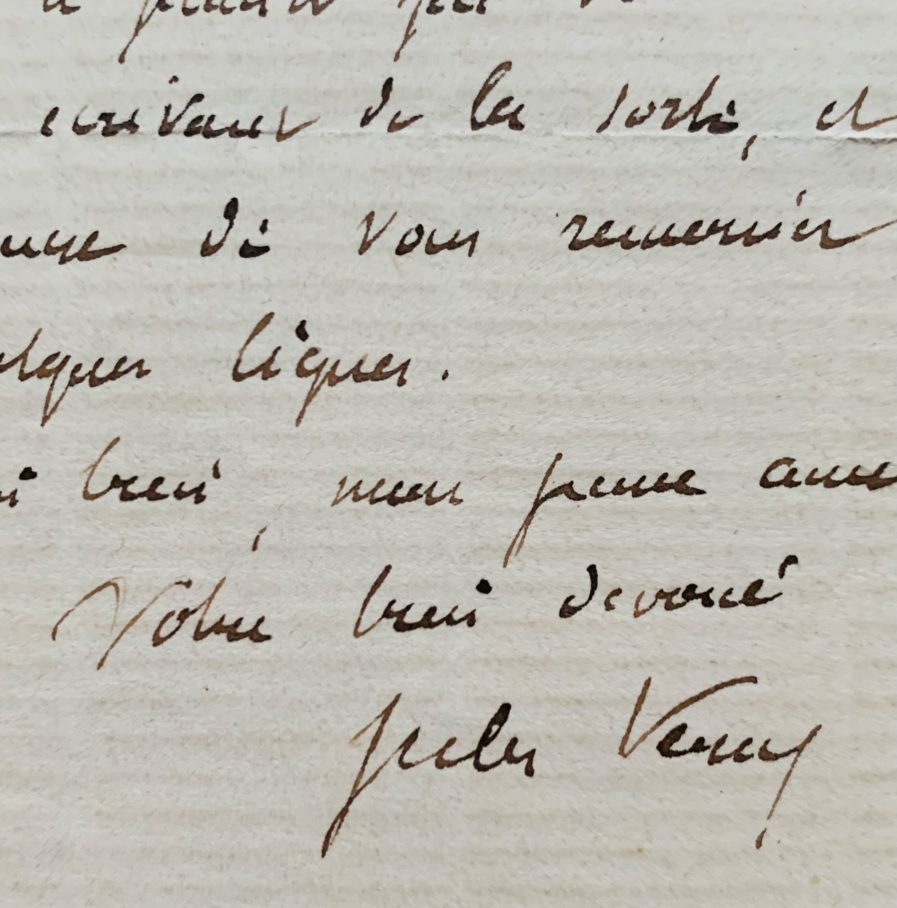 écrivant de la sorte, et
de vous remercier
lignes.
bien, mon jeune ami
Votre bien dévoué
Jules Verne